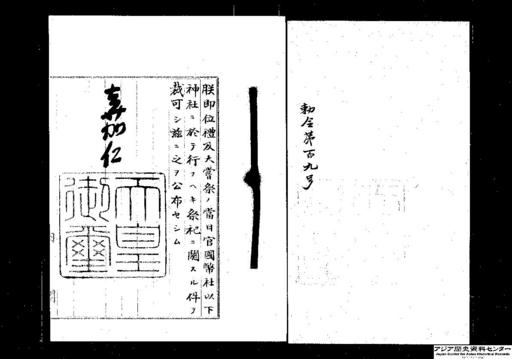 勅令第百九号
朕即位禮及大嘗祭ノ當日官國幣社以下
神社ニ於テ行フヘキ祭祀ニ關スル件ヲ
裁可シ茲ニ之ヲ公布セシム
嘉仁
天皇
御璽
アジア歴史資料センター
Japan Center for Asian Historical Records